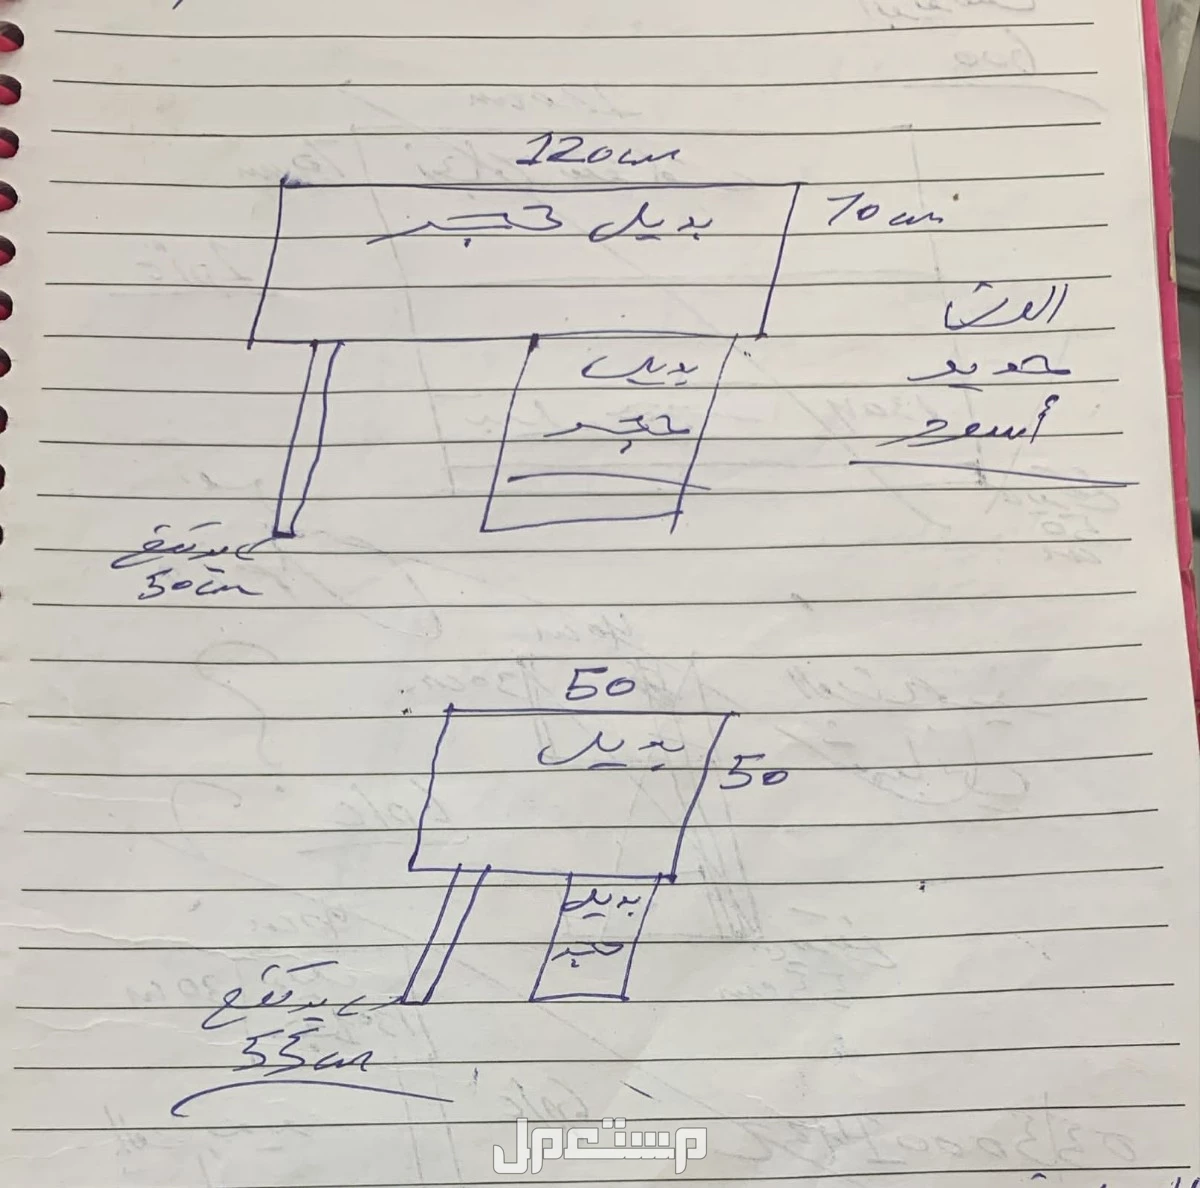 120cm
بديل حجر
70cm
حديد
أسود
بديل
حجر
يرتفع
50cm
50
بديل
50
بديل
حجر
يرتفع
55cm
مستعمل